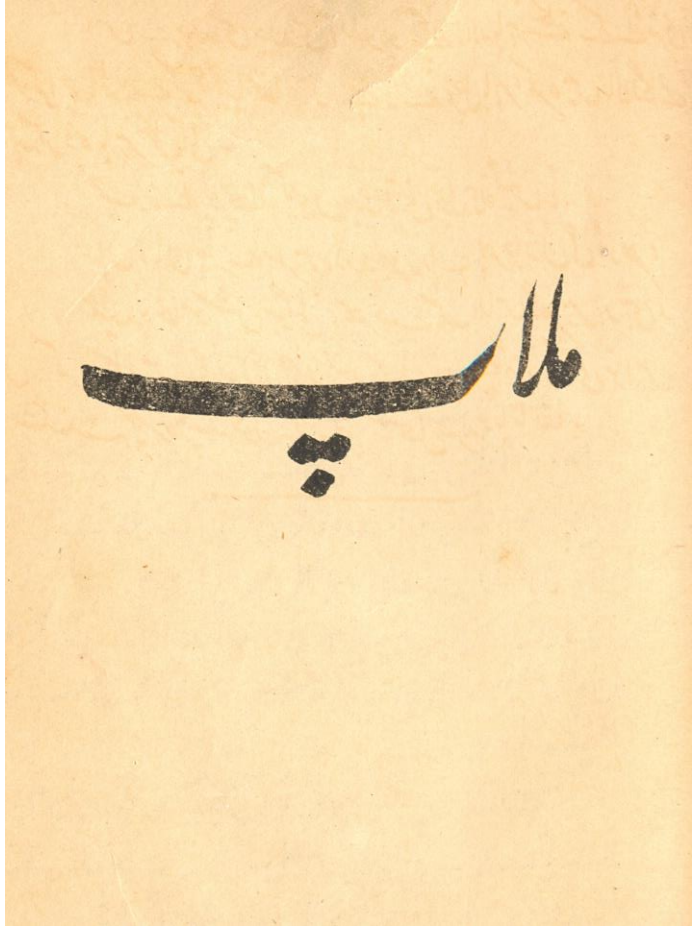 ملاپ